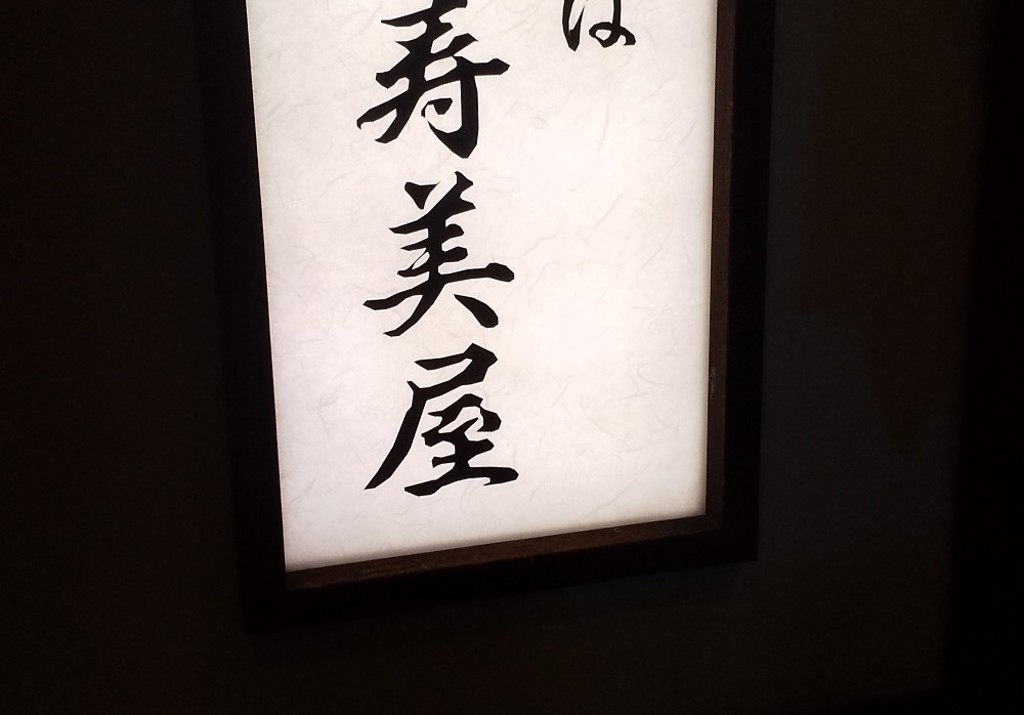 は
寿美屋